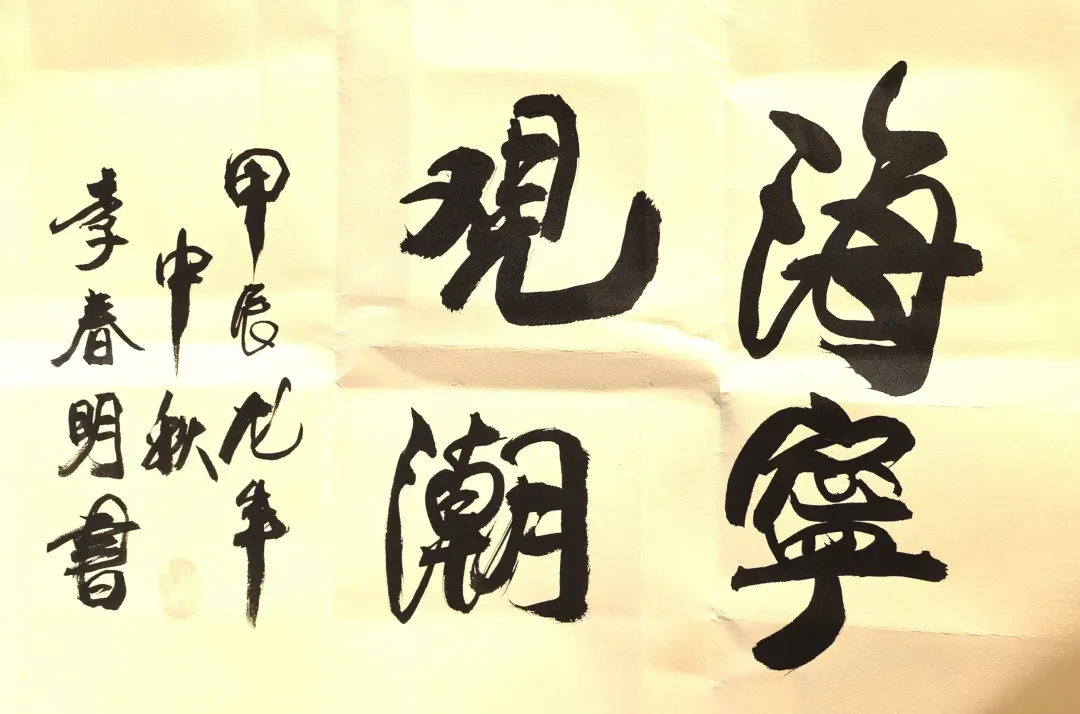 海寧
观潮
甲辰龙年
中秋
李春明書